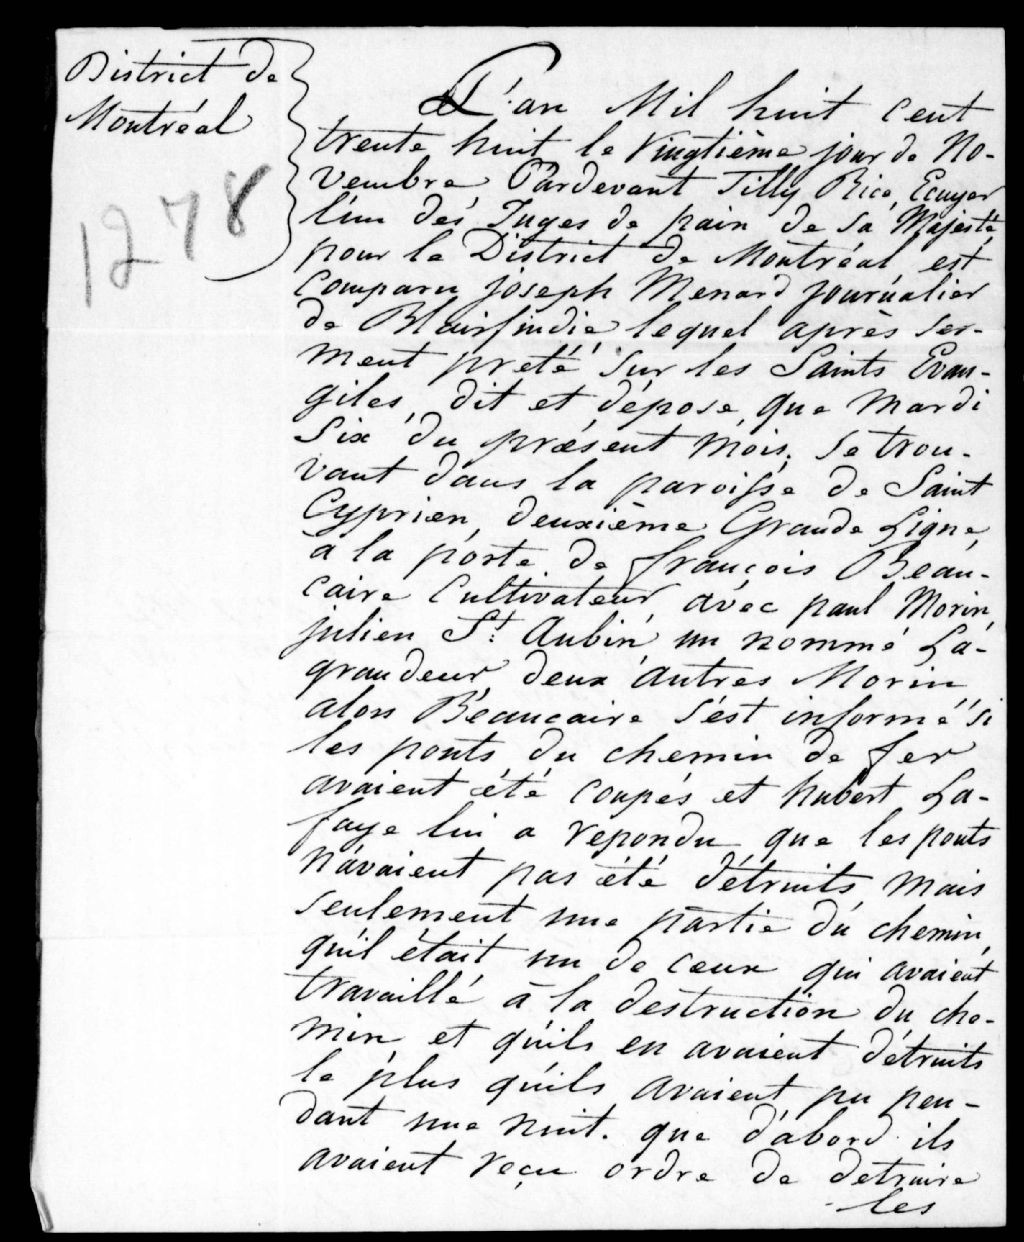 District de
Montréal
1278
L'an Mil huit cent
trente huit le vingtième jour de No-
vembre, Pardevant Tilly Rice, Ecuyer
l'un des Juges de paix de sa Majesté
pour le District de Montréal est
Comparu joseph Menard journalier
de Blairfindie, lequel après ser-
ment preté sur les Saints Evan-
giles, dit et dépose que mardi
Six du présent mois, se trou-
vant dans la paroisse de Saint
Cyprien, deuxième Grande Ligne,
à la porte de françois Beau-
caire Cultivateur avec paul Morin,
julien St. Aubin, un nommé La-
grandeur deux autres Morin
alors Beaucaire s'est informé si
les ponts du chemin de fer
avaient été coupés et hubert La-
faye lui a repondu que les ponts
n'avaient pas été détruits, mais
seulement une partie du chemin,
qu'il était un de ceux qui avaient
travaillé à la destruction du che-
min et qu'ils en avaient détruits
le plus qu'ils avaient pu pen-
dant une nuit. que d'abord ils
avaient reçu ordre de detruire
les